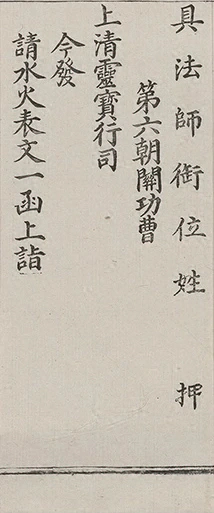 具法師銜位姓 押
第六朝關功曹
上清靈寶行司
今發
請水火表文一函上詣